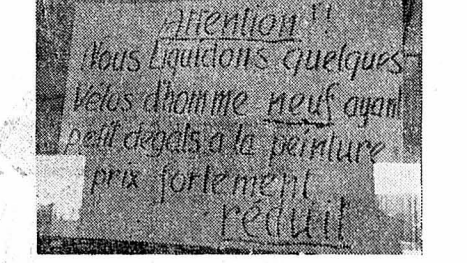 Attention !!
Nous Liquidons quelques
Vélos d'homme neuf ayant
petit dégats a la peinture
prix fortement
réduit